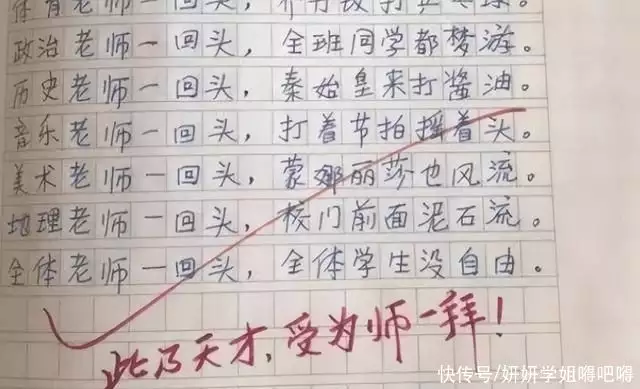 体育老师一回头，乔丹改打乒乓球。
政治老师一回头，全班同学都梦游。
历史老师一回头，秦始皇来打酱油。
音乐老师一回头，打着节拍摇着头。
美术老师一回头，蒙娜丽莎也风流。
地理老师一回头，校门前面泥石流。
全体老师一回头，全体学生没自由。
此乃天才，受为师一拜！
快传号/妍妍学姐嘚吧嘚